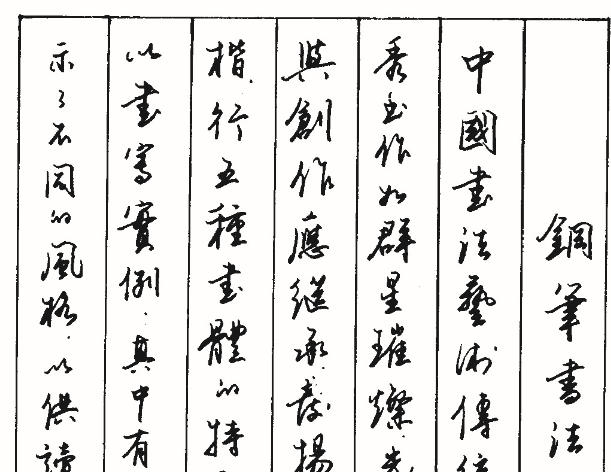 鋼筆書法
中國書法藝術傳
秀作如群星璀燦.
與創作應繼承.發揚
楷.行五種書體的特
以書寫實例.其中有
示了不同的風格.以供讀